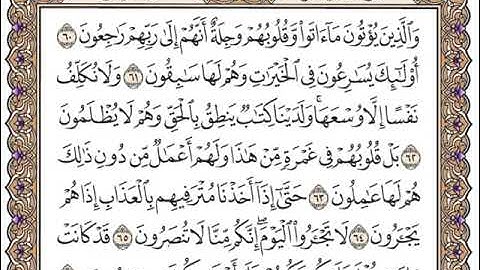 وَٱلَّذِينَ يُؤْتُونَ مَآءَاتَوا۟ وَّقُلُوبُهُمْ وَجِلَةٌ أَنَّهُمْ إِلَىٰ رَبِّهِمْ رَٰجِعُونَ ٦٠
أُو۟لَٰٓئِكَ يُسَٰرِعُونَ فِى ٱلْخَيْرَٰتِ وَهُمْ لَهَا سَٰبِقُونَ ٦١ وَلَا نُكَلِّفُ
نَفْسًا إِلَّا وُسْعَهَا ۖ وَلَدَيْنَا كِتَٰبٌ يَنطِقُ بِٱلْحَقِّ وَهُمْ لَا يُظْلَمُونَ
٦٢ بَلْ قُلُوبُهُمْ فِى غَمْرَةٍ مِّنْ هَٰذَا وَلَهُمْ أَعْمَٰلٌ مِّن دُونِ ذَٰلِكَ
هُمْ لَهَا عَٰمِلُونَ ٦٣ حَتَّىٰٓ إِذَآ أَخَذْنَا مُتْرَفِيهِم بِٱلْعَذَابِ إِذَا هُمْ
يَجْـَٔرُونَ ٦٤ لَا تَجْـَٔرُوا۟ ٱلْيَوْمَ ۖ إِنَّكُم مِّنَّا لَا تُنصَرُونَ ٦٥ قَدْ كَانَتْ